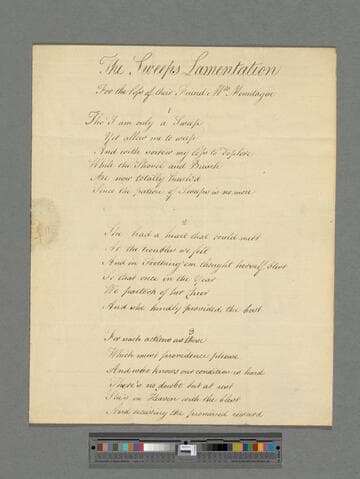 The Sweeps Lamentation
For the loss of their Friend Mrs Montague
1
Tho I am only a Sweep
Yet allow me to weep
And with sorrow my loss to deplore
While the Shovel and Brush
Are now totally
Since the patron of Sweeps is no more
2
She had a heart that could melt
At the troubles we felt
And in Soothing em thought herself blest
So that once in the Year
We partook of her
And she kindly provided the best
3
For such actions as these
Which must providence please
And who knows our condition is hard
There's no doubt but at rest
She's in Heaven with the blest
And receiving the promised reward